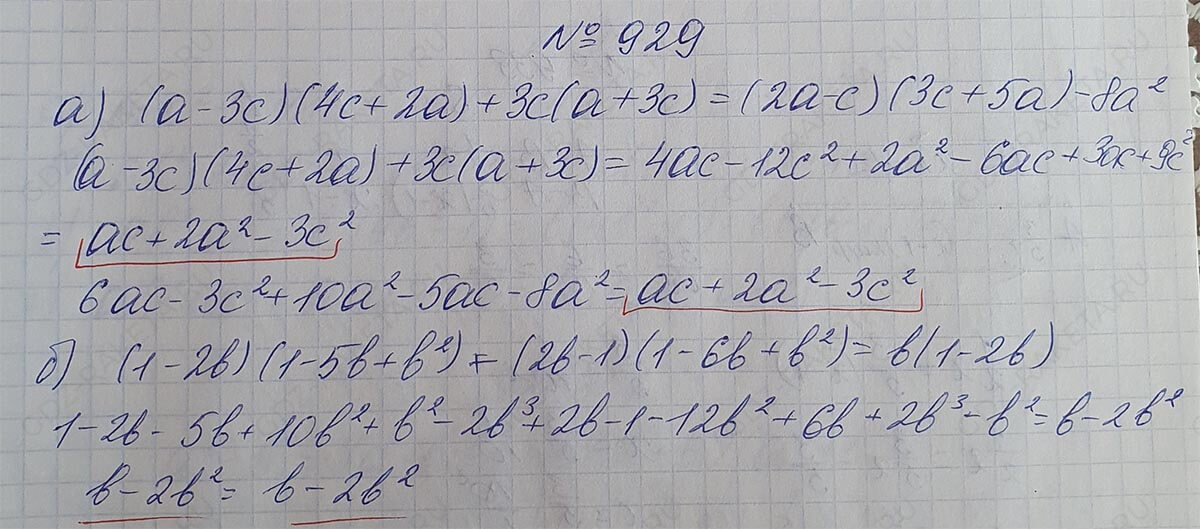 № 929
а) (a - 3c)(4c + 2a) + 3c(a + 3c) = (2a - c)(3c + 5a) - 8a²
(a - 3c)(4c + 2a) + 3c(a + 3c) = 4ac - 12c² + 2a² - 6ac + 3ac + 9c²
= ac + 2a² - 3c²
6ac - 3c² + 10a² - 5ac - 8a² = ac + 2a² - 3c²
б) (1 - 2b)(1 - 5b + b²) + (2b - 1)(1 - 6b + b²) = b(1 - 2b)
1 - 2b - 5b + 10b² + b² - 2b³ + 2b - 1 - 12b² + 6b + 2b³ - b² = b - 2b²
b - 2b² = b - 2b²